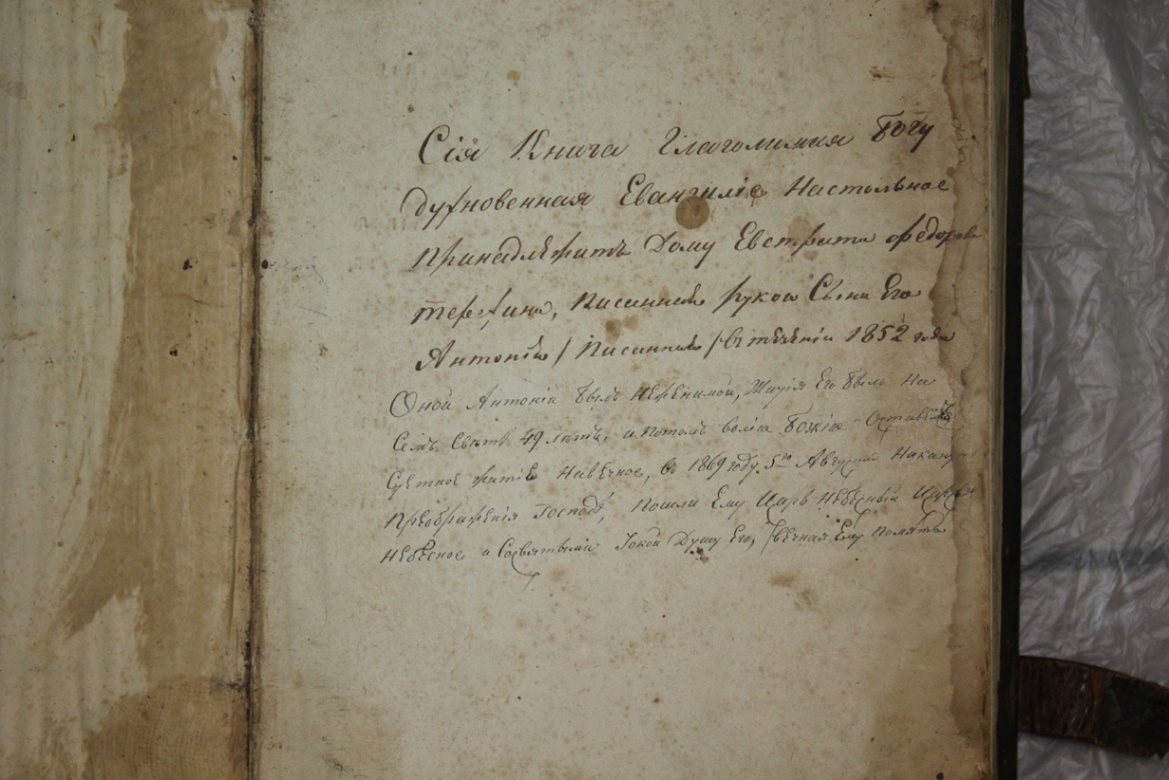 Сія Книга Глаголимия Богу
духновенная Евангиліе Настольное
принадлѣжитъ Дому Евстрата Федорова
терехина, Писанная рукою Сына Его
Антонія / Писанная / въ тѣченіи 1852 года
Оной Антоній былъ неженимой, Жития Его было На
Семъ Свѣте 49 лѣтъ, и потомъ волію Божію Оставилъ
Суетное житіе На вѣчное, въ 1869 году, 5го Августа Наканунѣ
Преображенія Господня, Пошли Ему Царь Небесный Царство
Небесное и Сосвятыми Покой Душу Его, вечная Ему Память